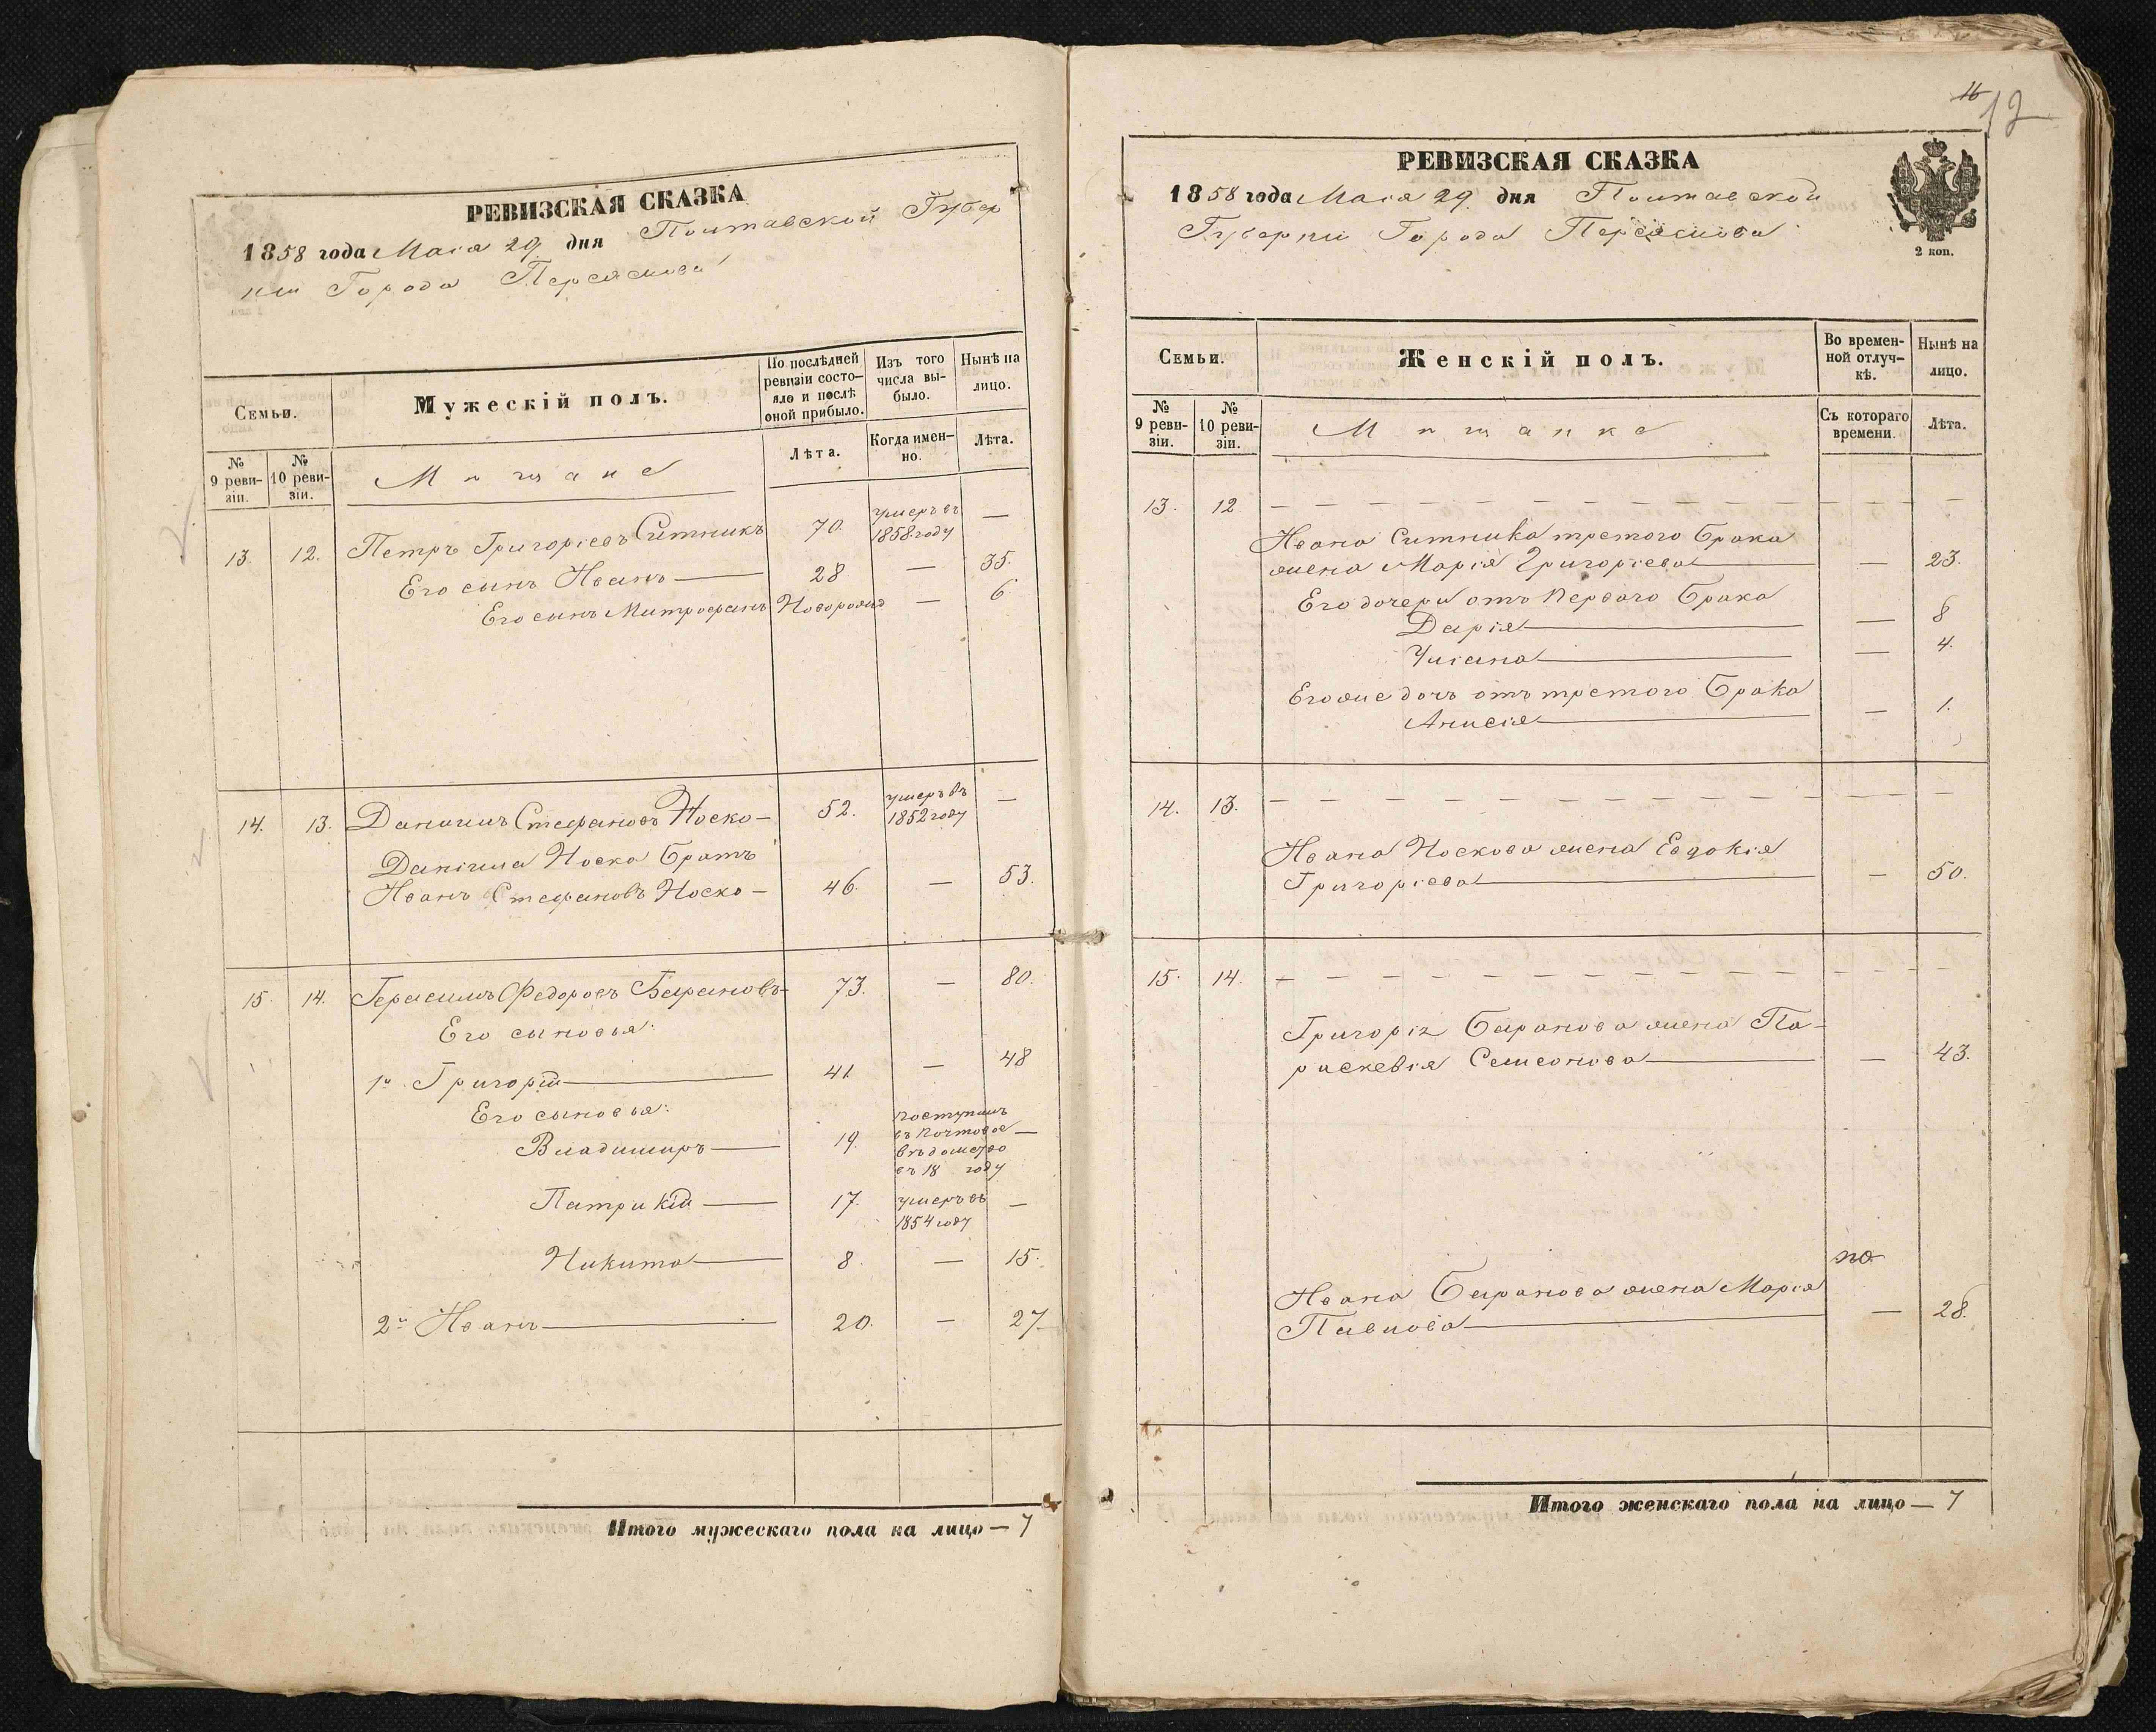 РЕВИЗСКАЯ СКАЗКА
1858 года Маія 29 дня Полтавской Губер
ніи Города Переяслова
Семьи.
Мужескій полъ.
По послѣдней ревизіи состо-
яло и послѣ оной прибыло.
Изъ того числа вы-
было.
Нынѣ на лицо.
№ 9 реви-
зіи.
№ 10 реви-
зіи.
Мѣщане
Лѣта.
Когда имен-
но.
Лѣта.
13. 12. Петръ Григоріевъ Ситникъ 70. умеръ въ 1858 году —
Его сынъ Иванъ — 28 — 35.
Его сынъ Митрофанъ Новорожд — 6.
14. 13. Данилъ Стефановъ Носко — 52. умеръ въ 1852 году —
Даніила Носка братъ
Иванъ Стефановъ Носко — 46. — 53.
15. 14. Герасимъ Федоровъ Барановъ — 73. — 80.
Его сыновья:
1й Григорій — 41. — 48
Его сыновья:
Владимиръ — 19. поступилъ въ почтовое вѣдомство въ 18 году —
Патрикій — 17. умеръ въ 1854 году —
Никита — 8. — 15.
2й Иванъ — 20. — 27
Итого мужескаго пола на лицо — 7
16
12
РЕВИЗСКАЯ СКАЗКА
1858 года Маія 29 дня Полтавской
Губерніи Города Переяслова
2 коп.
Семьи.
Женскій полъ.
Во времен-
ной отлуч-
кѣ.
Нынѣ на лицо.
№ 9 реви-
зіи.
№ 10 реви-
зіи.
Мѣщанке
Съ котораго времени.
Лѣта.
13. 12 — — —
Ивана Ситника третого брака
жена Марія Григоріева — — 23.
Его дочери отъ первого брака
Дарія — — 8
Уліана — — 4.
Его же дочь отъ третого брака
Анисія — — 1.
14. 13. — — —
Ивана Носкова жена Евдокія
Григоріева — — 50.
15. 14. — — —
Григорія Баранова жена Па-
раскевія Семсонова — — 43.
Ивана Баранова жена Марія
Павлова — — 28.
Итого женскаго пола на лицо — 7